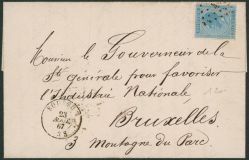 Monsieur le Gouverneur de la
Sté générale pour favoriser
l'Industrie Nationale,
Bruxelles
3 Montagne du Parc
23
67